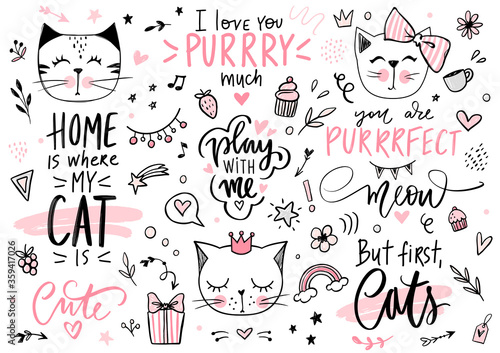 I love you
PURRRY
much
you are
PURRRFECT
HOME
is where
MY
CAT
is
play
with
me
meow
But first,
Cats
Cute
Adobe Stock
#359417026